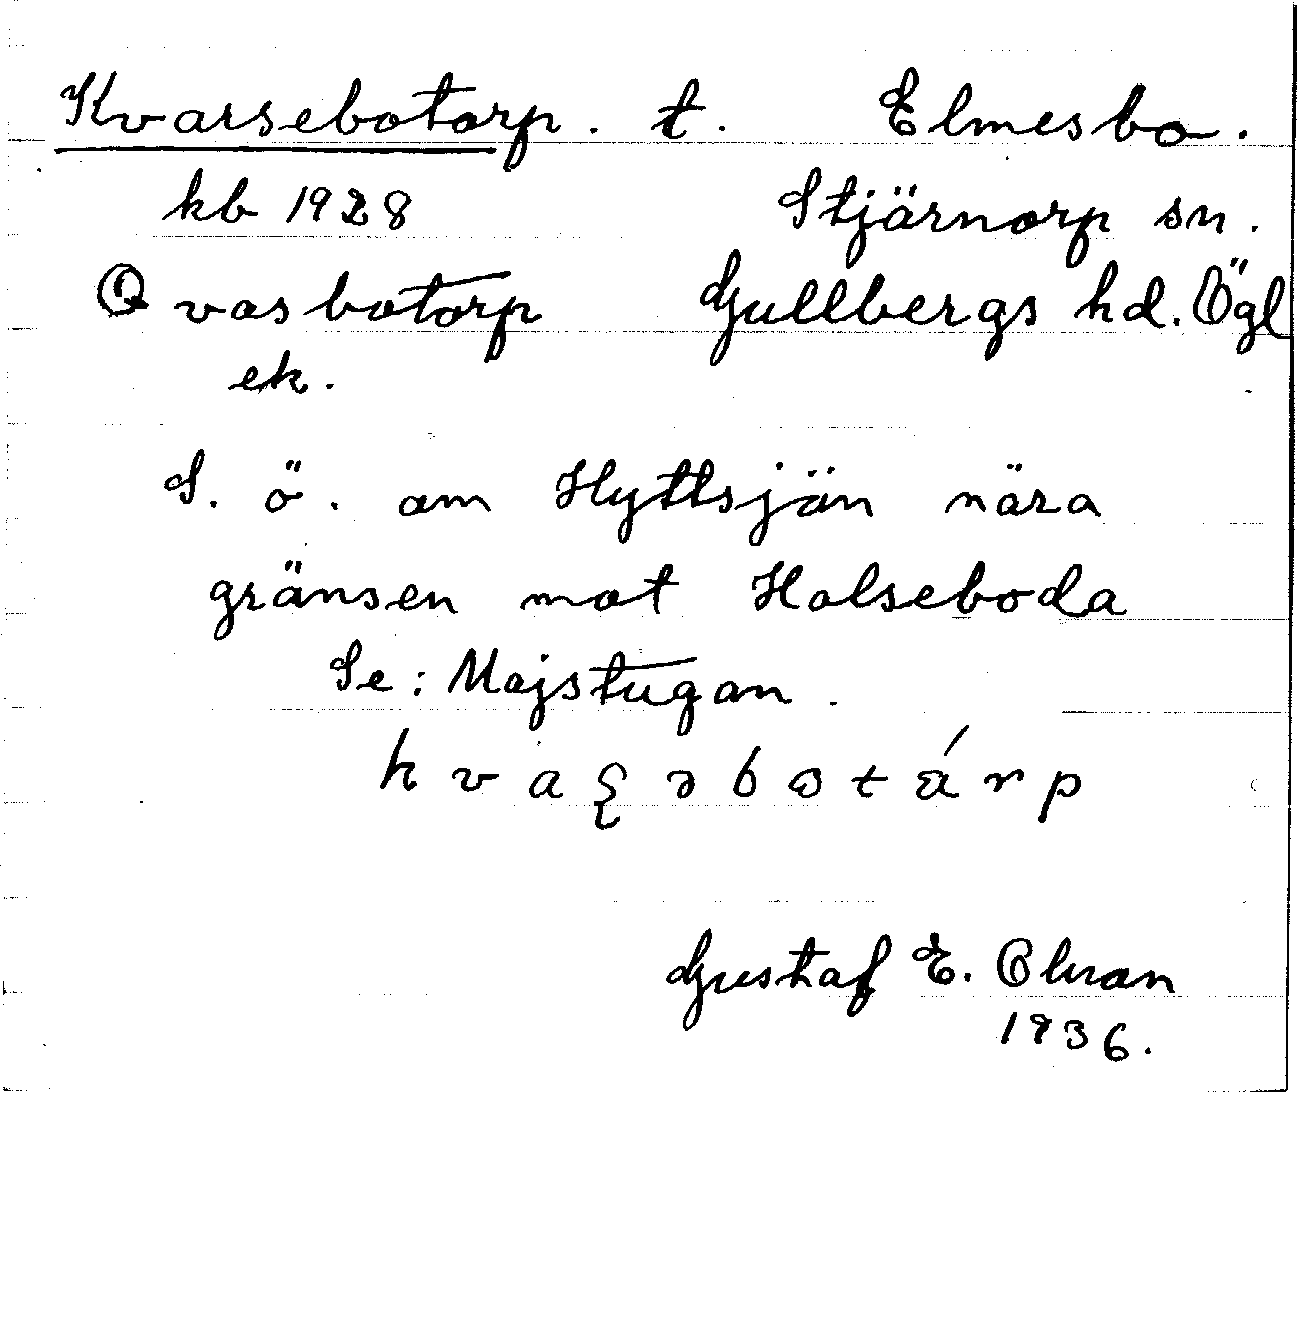 Kvarsebotorp. t. Elmesbo.
kb 1928 Stjärnorp sn.
Qvasbotorp Gullbergs hd. Ögl
ek.
S. ö. om Hyttsjön nära
gränsen mot Holseboda
Se: Majstugan.
kvaʂəbotárp
Gustaf E.
1936.